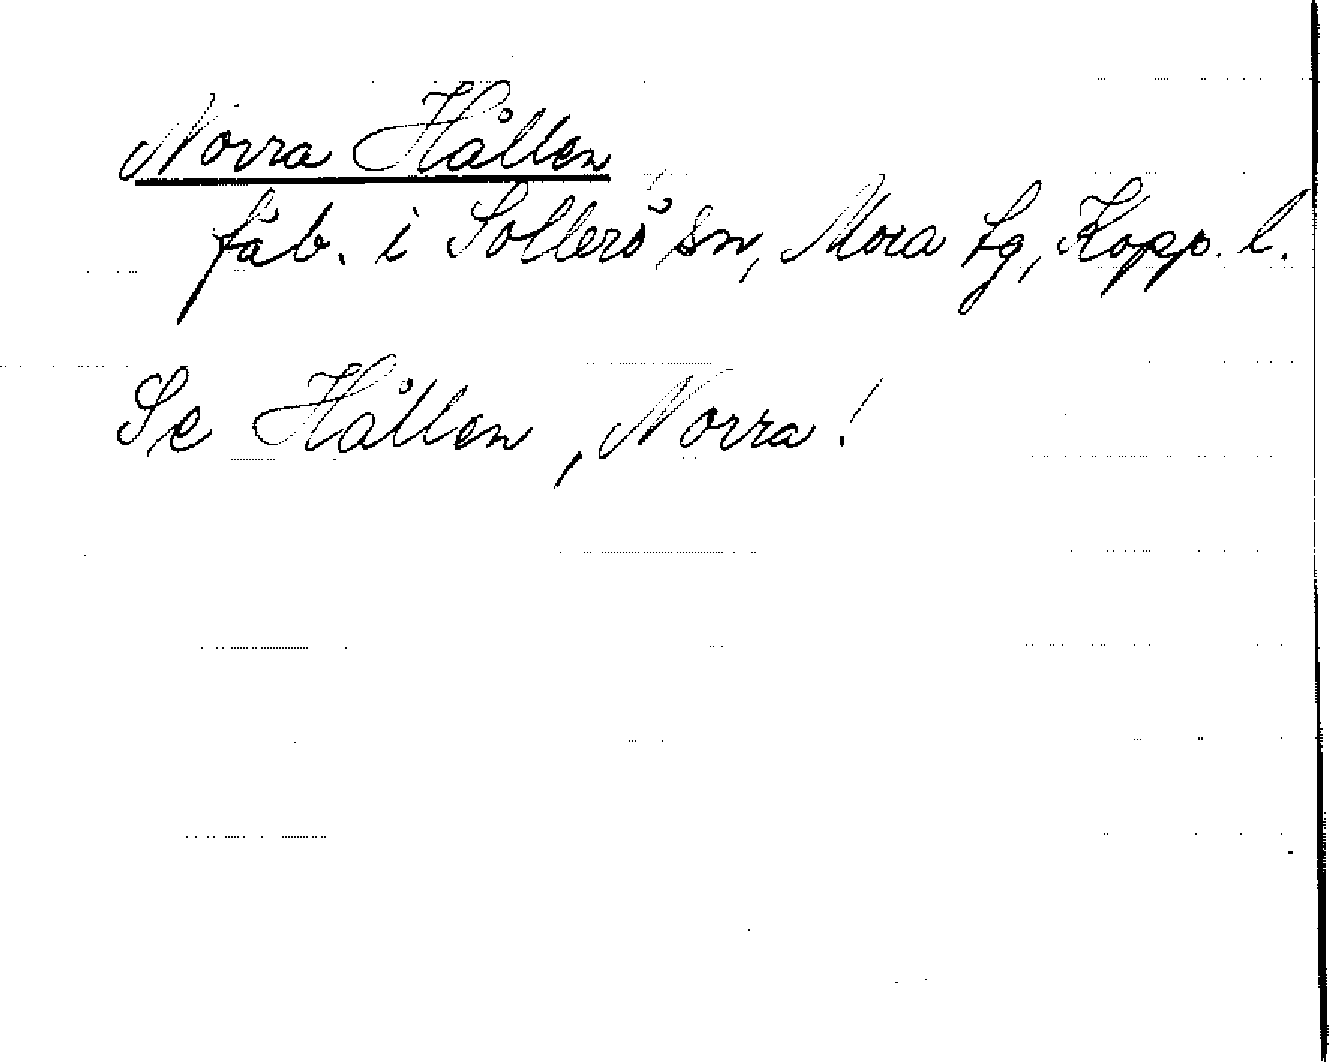 Norra Hållen
fäb. i Sollerö sn, Mora tg, Kopp. l.
Se Hållen, Norra!